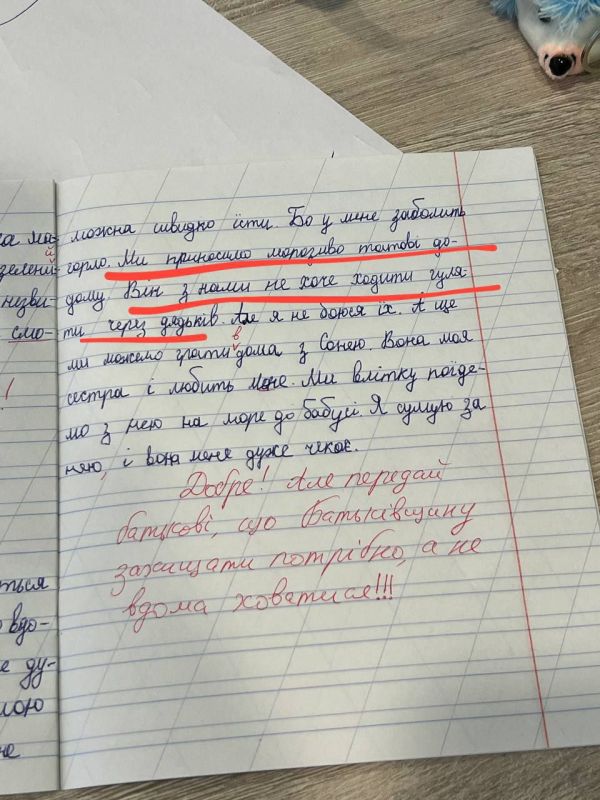 можна швидко їсти. Бо у мене заболить
горло. Ми приносимо морозиво татові до-
дому. Він з нами не хоче ходити гуля-
ти через дядьків. Але я не боюся їх. А ще
ми можемо грати в дома з Сонею. Вона моя
сестра і любить мене. Ми влітку поїде-
мо з нею на море до бабусі. Я сумую за
нею, і вона мене дуже чекає.
Добре! Але передай
батькові, що Батьківщину
захищати потрібно, а не
вдома ховатися!!!
ма-
й
зелені
незви-
смо-
!
ться
вдо-
ду-
ною
не